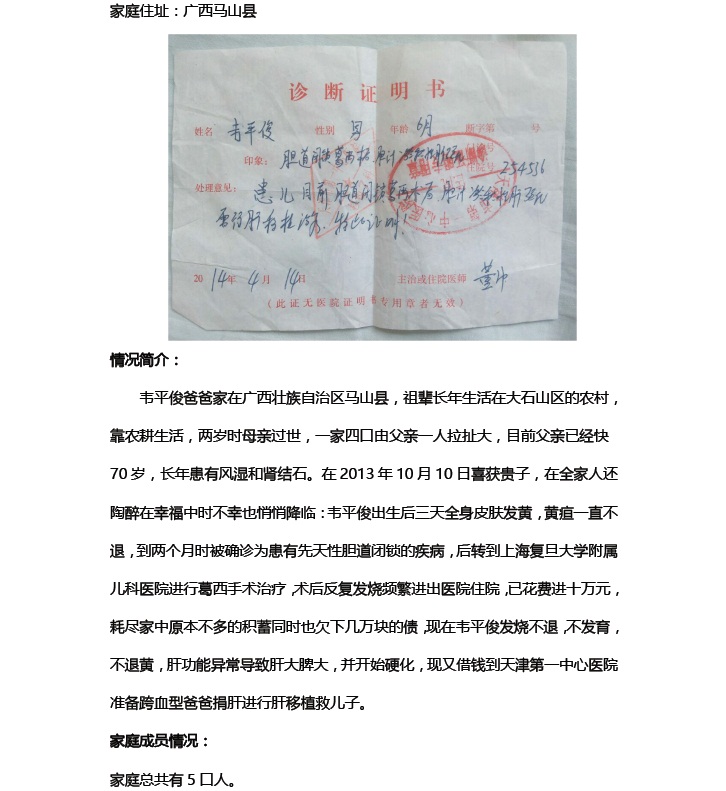 家庭住址：广西马山县
诊断证明书
姓名 韦平俊 性别 男 年龄 6月 断字第 号
门诊号
印象： 胆道闭锁葛西术后 胆汁淤积性肝硬化 住院号 254536
处理意见： 患儿目前胆道闭锁葛西术后 胆汁淤积性肝硬化
需行肝移植治疗，特此证明！
2014年 4月 14日 主治或住院医师
（此证无医院证明书专用章者无效）
情况简介：
韦平俊爸爸家在广西壮族自治区马山县，祖辈长年生活在大石山区的农村，
靠农耕生活，两岁时母亲过世，一家四口由父亲一人拉扯大，目前父亲已经快
70岁，长年患有风湿和肾结石。在2013年10月10日喜获贵子，在全家人还
陶醉在幸福中时不幸也悄悄降临：韦平俊出生后三天全身皮肤发黄，黄疸一直不
退，到两个月时被确诊为患有先天性胆道闭锁的疾病，后转到上海复旦大学附属
儿科医院进行葛西手术治疗，术后反复发烧频繁进出医院住院，已花费进十万元，
耗尽家中原本不多的积蓄同时也欠下几万块的债，现在韦平俊发烧不退，不发育，
不退黄，肝功能异常导致肝大脾大，并开始硬化，现又借钱到天津第一中心医院
准备跨血型爸爸捐肝进行肝移植救儿子。
家庭成员情况：
家庭总共有5口人。